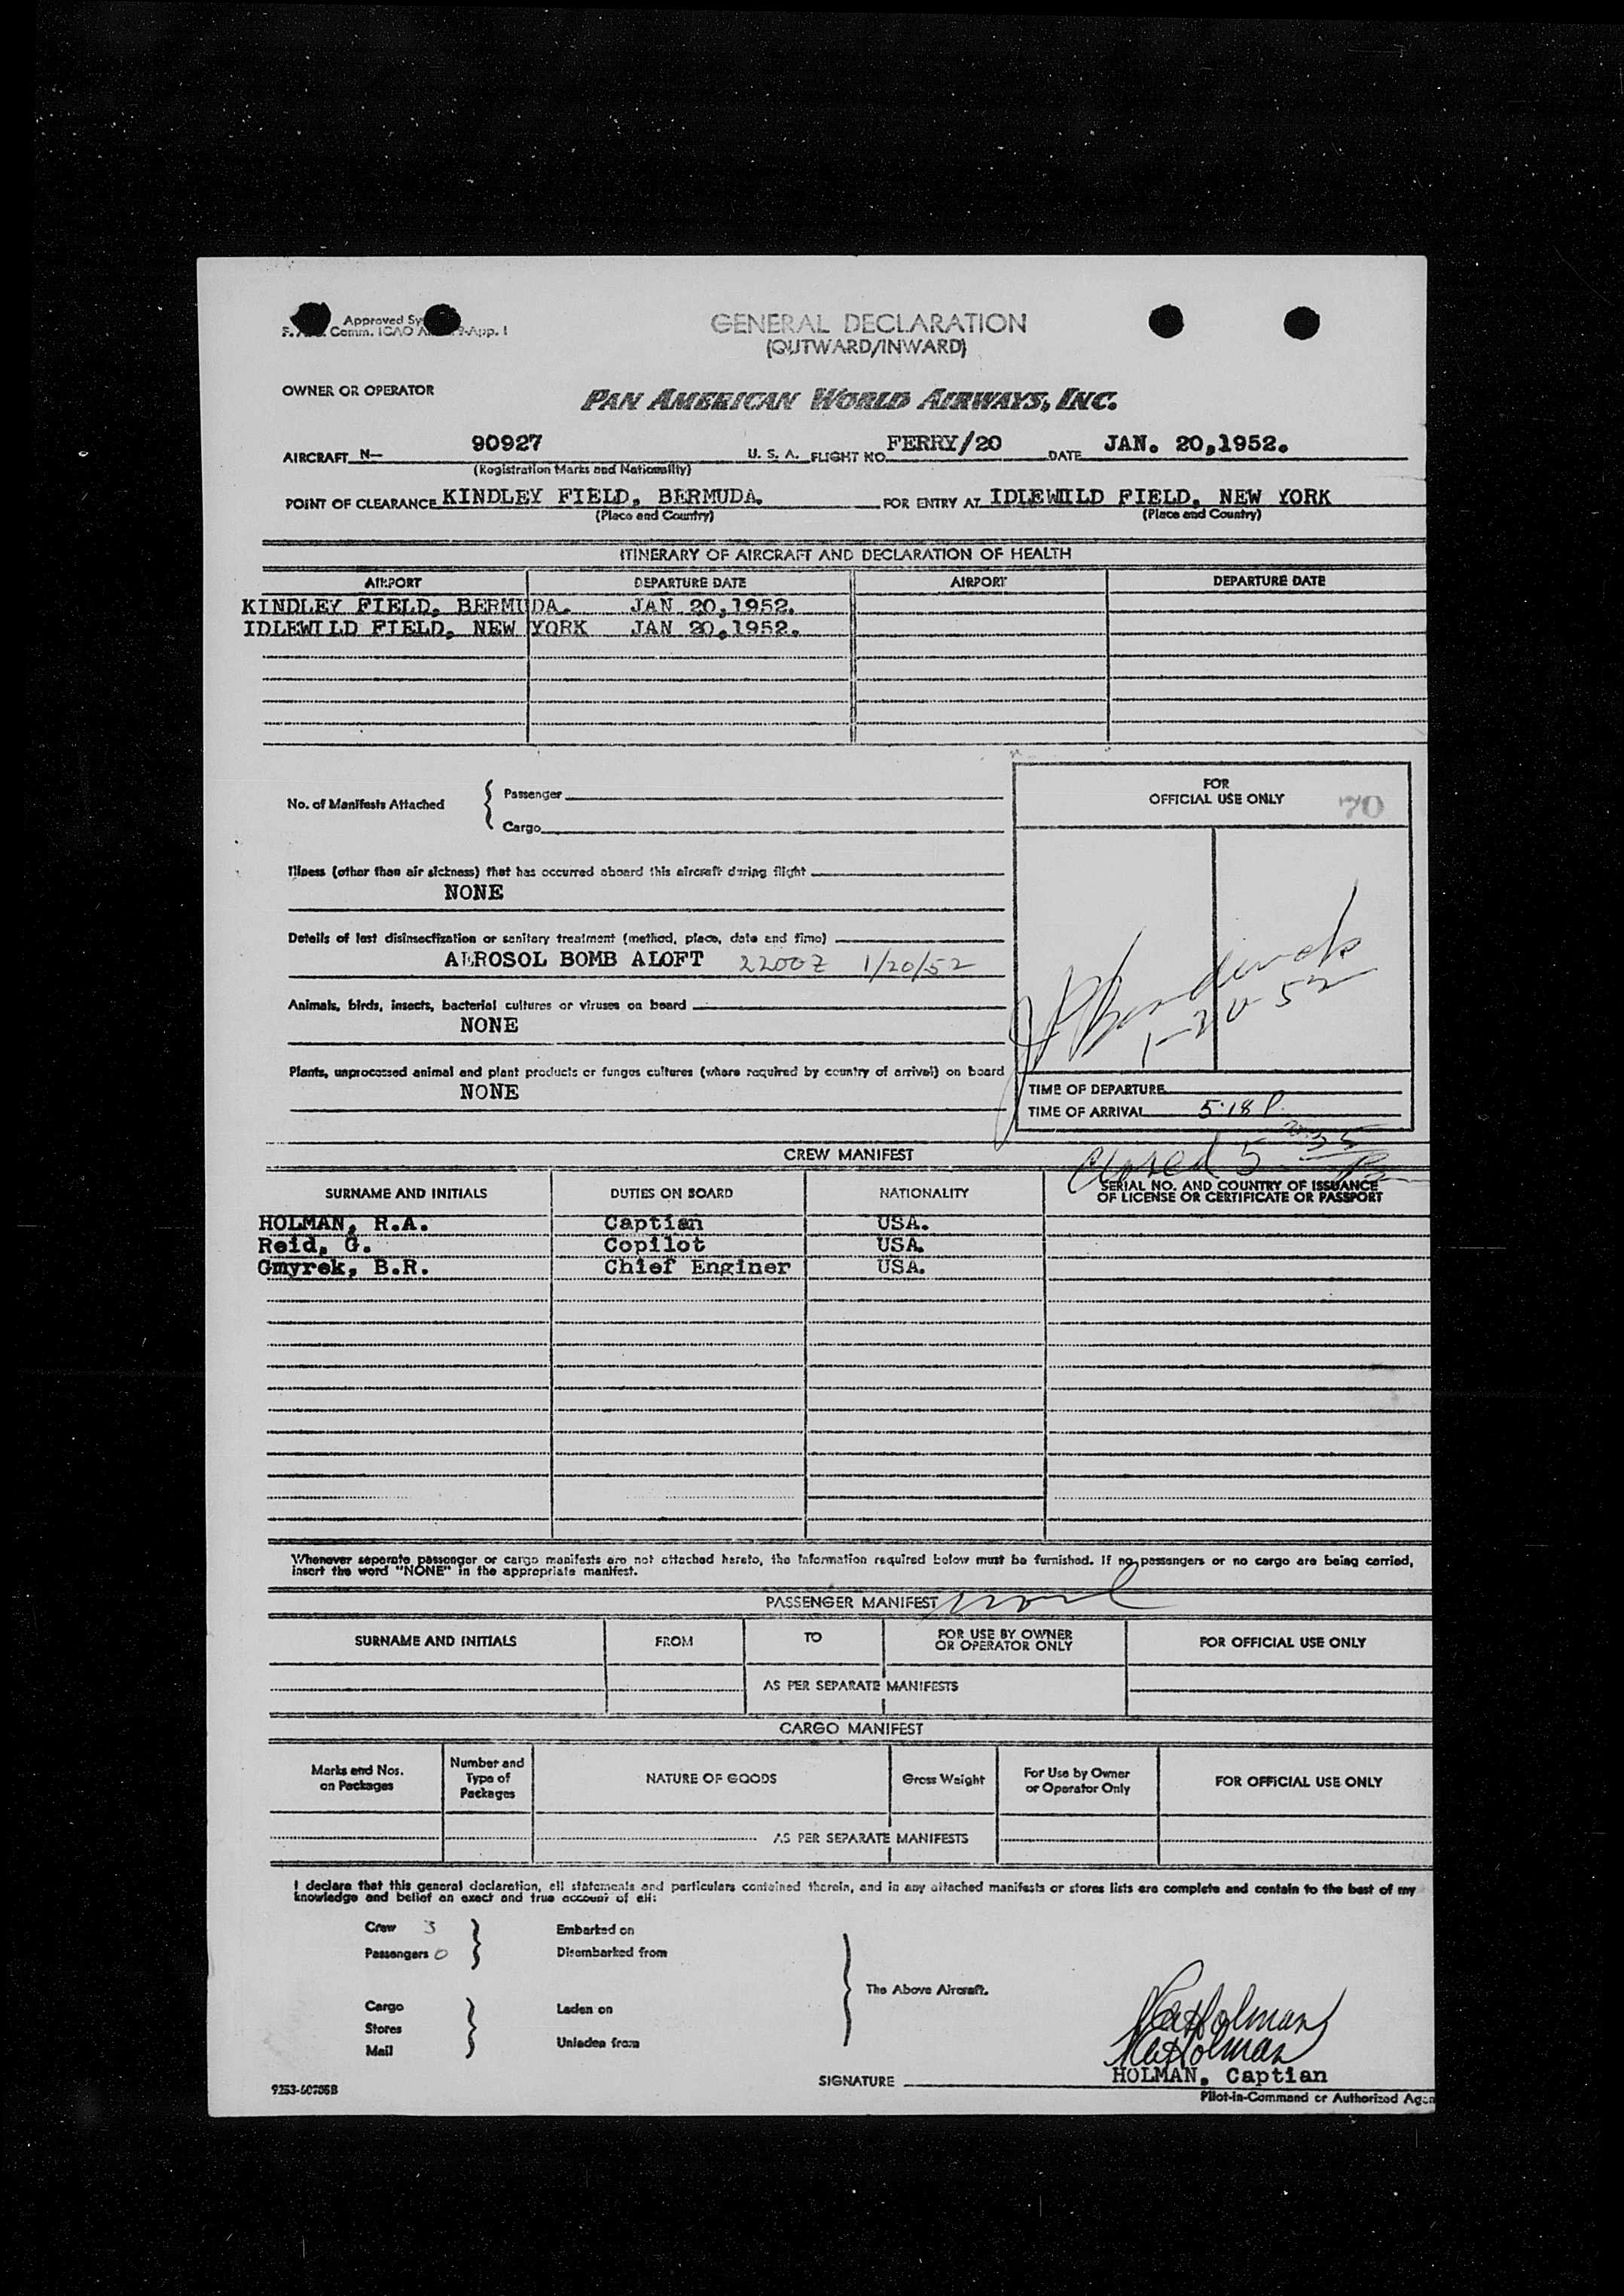 Approved
Comm. ICAO App. 1
GENERAL DECLARATION
(OUTWARD/INWARD)
OWNER OR OPERATOR
PAN AMERICAN WORLD AIRWAYS, INC.
AIRCRAFT N— 90927 U. S. A. FLIGHT NO. FERRY/20 DATE JAN. 20,1952.
(Registration Marks and Nationality)
POINT OF CLEARANCE KINDLEY FIELD, BERMUDA. FOR ENTRY AT IDLEWILD FIELD, NEW YORK
(Place and Country) (Place and Country)
ITINERARY OF AIRCRAFT AND DECLARATION OF HEALTH
AIRPORT DEPARTURE DATE AIRPORT DEPARTURE DATE
KINDLEY FIELD, BERMUDA. JAN 20,1952.
IDLEWILD FIELD, NEW YORK JAN 20,1952.
No. of Manifests Attached
Passenger
Cargo
FOR
OFFICIAL USE ONLY
70
Illness (other than air sickness) that has occurred aboard this aircraft during flight
NONE
Details of last disinsectization or sanitary treatment (method, place, date and time)
AEROSOL BOMB ALOFT 2200Z 1/20/52
Animals, birds, insects, bacterial cultures or viruses on board
NONE
1-20-52
Plants, unprocessed animal and plant products or fungus cultures (where required by country of arrival) on board
NONE
TIME OF DEPARTURE
TIME OF ARRIVAL 5:18 P.
Closed 5
CREW MANIFEST
SURNAME AND INITIALS DUTIES ON BOARD NATIONALITY SERIAL NO. AND COUNTRY OF ISSUANCE
OF LICENSE OR CERTIFICATE OR PASSPORT
HOLMAN, R.A. Captian USA.
Reid, G. Copilot USA.
Gmyrek, B.R. Chief Enginer USA.
Whenever separate passenger or cargo manifests are not attached hereto, the information required below must be furnished. If no passengers or no cargo are being carried,
insert the word "NONE" in the appropriate manifest.
PASSENGER MANIFEST None
SURNAME AND INITIALS FROM TO FOR USE BY OWNER
OR OPERATOR ONLY FOR OFFICIAL USE ONLY
AS PER SEPARATE MANIFESTS
CARGO MANIFEST
Marks and Nos.
on Packages
Number and
Type of
Packages
NATURE OF GOODS
Gross Weight
For Use by Owner
or Operator Only
FOR OFFICIAL USE ONLY
AS PER SEPARATE MANIFESTS
I declare that this general declaration, all statements and particulars contained therein, and in any attached manifests or stores lists are complete and contain to the best of my
knowledge and belief an exact and true account of all:
Crew 3
Passengers 0
Embarked on
Disembarked from
The Above Aircraft.
Cargo
Stores
Mail
Laden on
Unladen from
RA Holman
RA Holman
HOLMAN, Captian
SIGNATURE
Pilot-in-Command or Authorized Agen